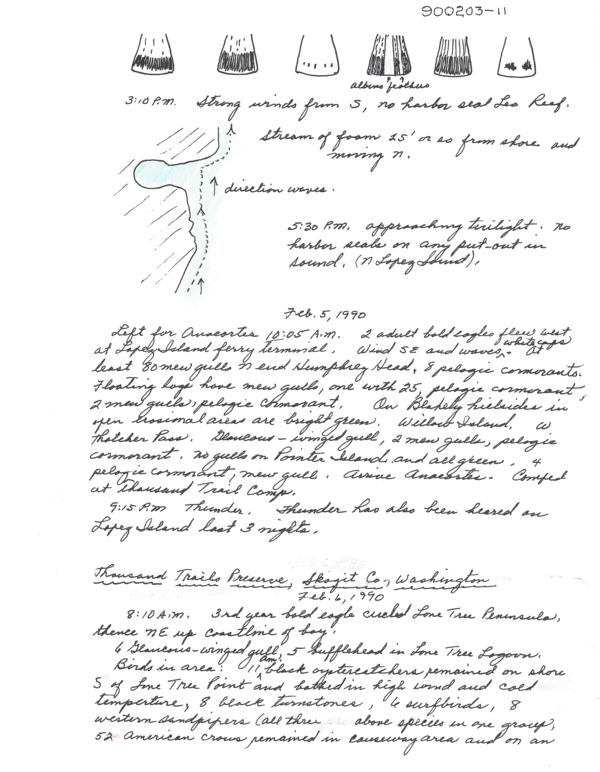 900203-11
albino feathers
3:10 P.M. Strong winds from S, no harbor seal Leo Reef.
Stream of foam 25' or so from shore and
moving N.
direction waves.
5:30 P.M. approaching twilight. no
harbor seals on any put-out in
sound. (N Lopez Sound).
Feb. 5, 1990
Left for Anacortes 10:05 A.M. 2 adult bald eagles flew west
at Lopez Island ferry terminal. Wind SE and waves, whitecaps. At
least 80 mew gulls N end Humphrey Head, 8 pelagic cormorants.
Floating logs have mew gulls, one with 25, pelagic cormorant,
2 mew gulls, pelagic cormorant. On Blakely hillsides in
open erosional areas are bright green. Willow Island, W.
Thatcher Pass. Glaucous-winged gull, 2 mew gulls, pelagic
cormorant. no gulls on Pointer Island and all green. 4
pelagic cormorant, mew gull. Arrive Anacortes. Camped
at Thousand Trail Camp.
9:15 P.M Thunder. Thunder has also been heard on
Lopez Island last 3 nights.
Thousand Trails Preserve, Skagit Co., Washington
Feb. 6, 1990
8:10 A.M. 3rd year bald eagle circled Lone Tree Peninsula,
thence NE up coastline of bay.
6 Glaucous-winged gull, 5 bufflehead in Lone Tree Lagoon.
Birds in area: 11 Am. black oystercatchers remained on shore
S of Lone Tree Point and bathed in high wind and cold
temperture, 8 black turnstones, 6 surfbirds, 8
western sandpipers (all three above species in one group,
52 American crows remained in causeway area and on an